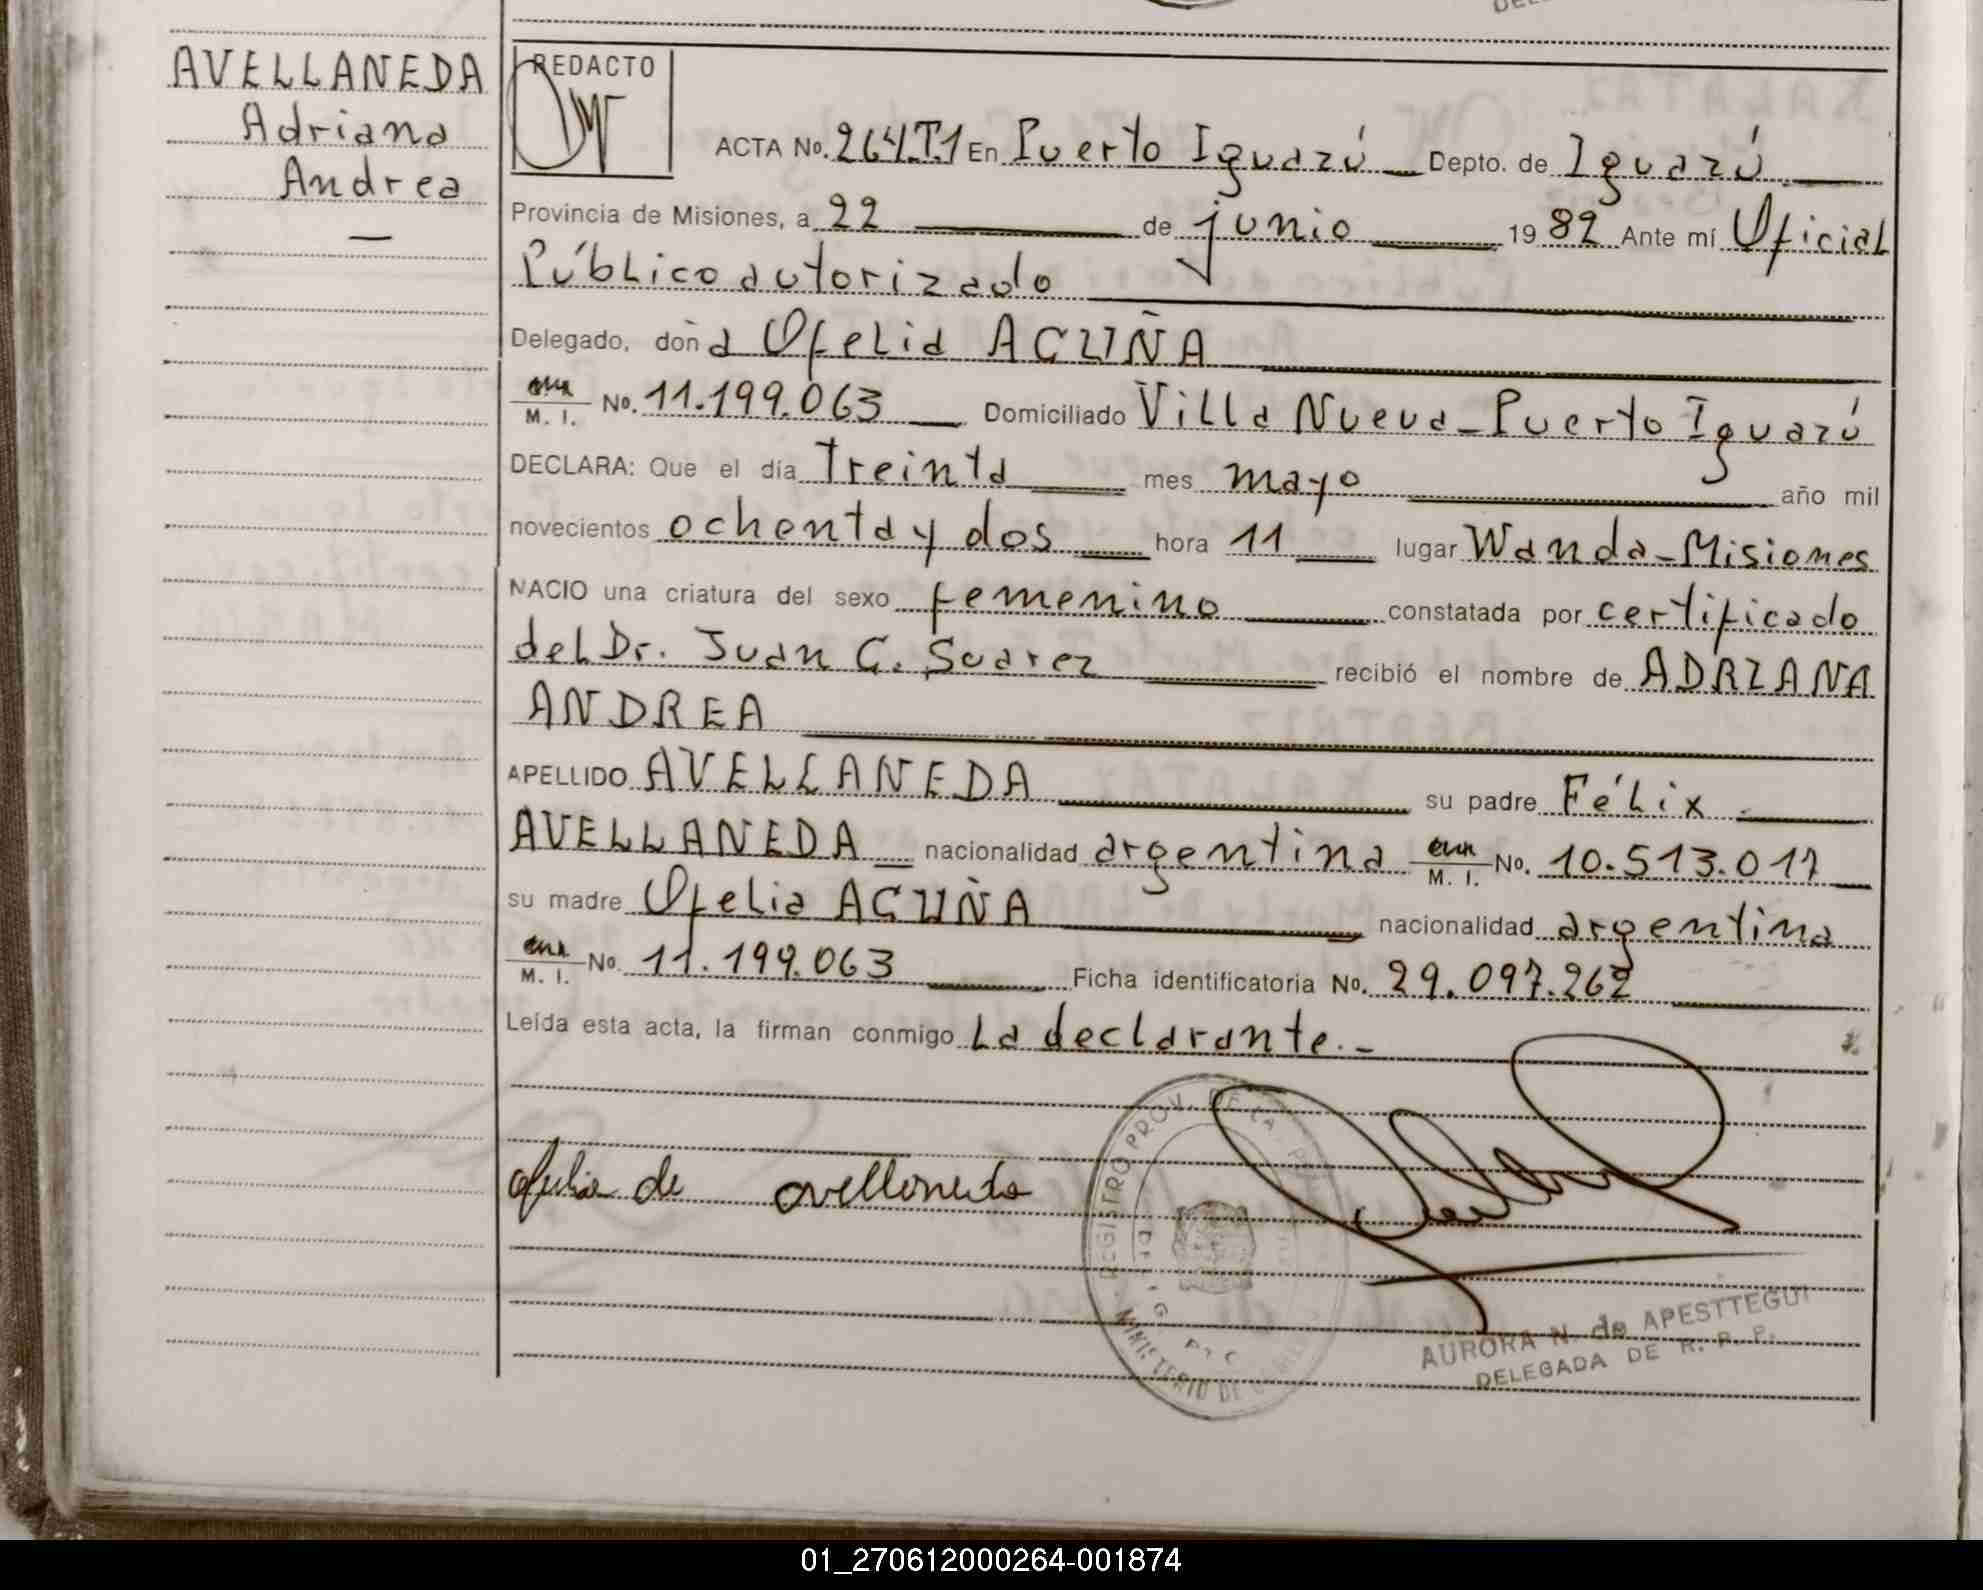 AVELLANEDA
Adriana
Andrea
—
REDACTO
ACTA No. 264.T.1 En Puerto Iguazú — Depto. de Iguazú.—
Provincia de Misiones, a 22 — de junio — 1982 Ante mí Oficial
Público autorizado —
Delegado, doña Ofelia ACUÑA —
M. I. No. 11.199.063 — Domiciliado Villa Nueva - Puerto Iguazú
DECLARA: Que el día treinta — mes mayo — año mil
novecientos ochenta y dos — hora 11 — lugar Wanda - Misiones
NACIO una criatura del sexo femenino — constatada por certificado
del Dr. Juan C. Suarez — recibió el nombre de ADRIANA
ANDREA —
APELLIDO AVELLANEDA — su padre Félix.—
AVELLANEDA — nacionalidad argentina M. I. No. 10.513.017 —
su madre Ofelia ACUÑA — nacionalidad argentina
M. I. No. 11.199.063 — Ficha identificatoria No. 29.097.262 —
Leída esta acta, la firman conmigo la declarante.-
REGISTRO PROV. DE LA
MINISTERIO DE
ofelia de avellaneda
AURORA N. de APESTTEGUI
DELEGADA DE R. P. P.
01_270612000264-001874